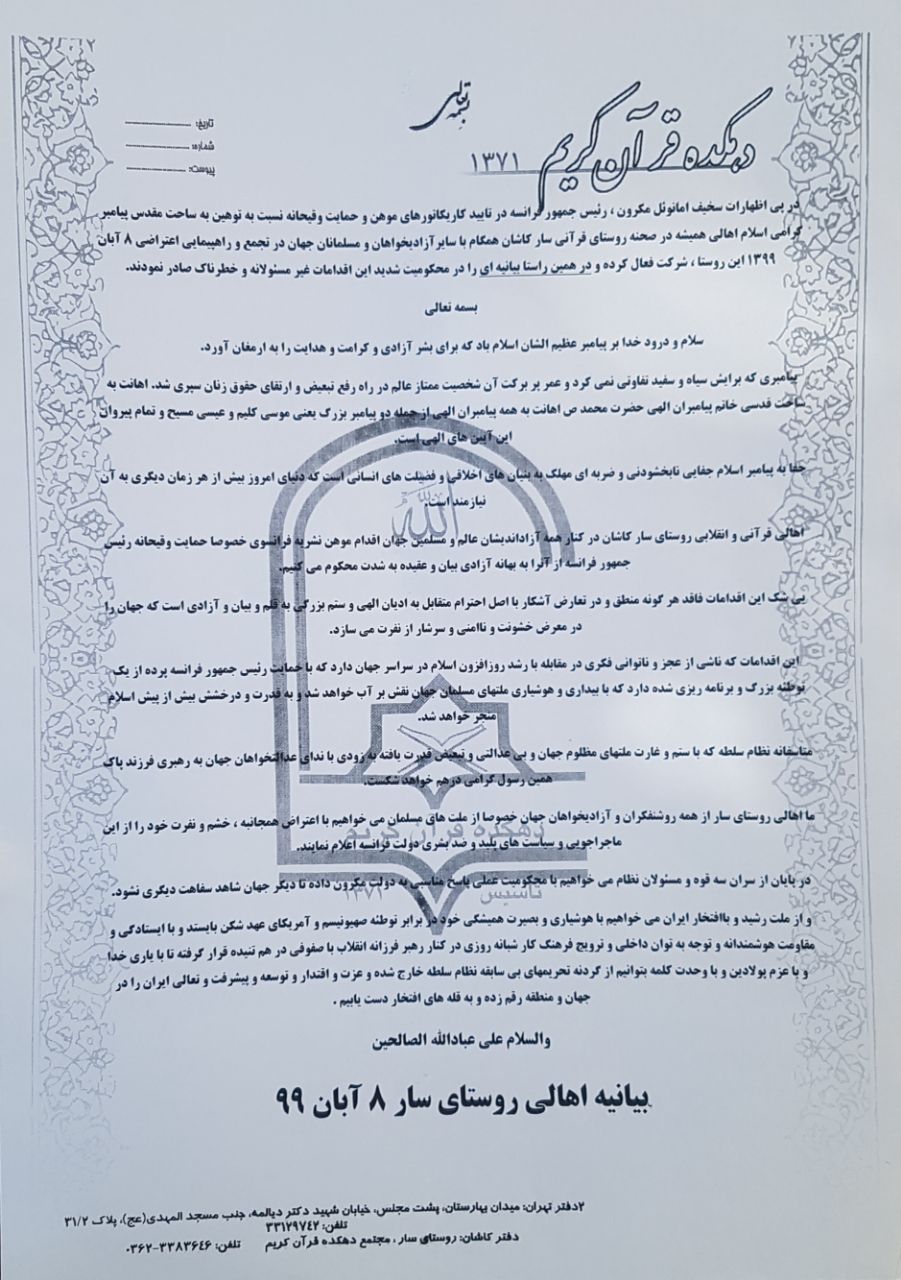 بسمه تعالی
دهکده قرآن کریم ۱۳۷۱
تاریخ:
شماره:
پیوست:
در پی اظهارات سخیف امانوئل مکرون ، رئیس جمهور فرانسه در تایید کاریکاتورهای موهن و حمایت وقیحانه نسبت به توهین به ساحت مقدس پیامبر
گرامی اسلام اهالی همیشه در صحنه روستای قرآنی سار کاشان همگام با سایرآزادیخواهان و مسلمانان جهان در تجمع و راهپیمایی اعتراضی ۸ آبان
۱۳۹۹ این روستا ، شرکت فعال کرده و در همین راستا بیانیه ای را در محکومیت شدید این اقدامات غیر مسئولانه و خطرناک صادر نمودند.
بسمه تعالی
سلام و درود خدا بر پیامبر عظیم الشان اسلام باد که برای بشر آزادی و کرامت و هدایت را به ارمغان آورد.
پیامبری که برایش سیاه و سفید تفاوتی نمی کرد و عمر پر برکت آن شخصیت ممتاز عالم در راه رفع تبعیض و ارتقای حقوق زنان سپری شد. اهانت به
ساحت قدسی خاتم پیامبران الهی حضرت محمد ص اهانت به همه پیامبران الهی از جمله دو پیامبر بزرگ یعنی موسی کلیم و عیسی مسیح و تمام پیروان
این آیین های الهی است.
جفا به پیامبر اسلام جفایی نابخشودنی و ضربه ای مهلک به بنیان های اخلاقی و فضیلت های انسانی است که دنیای امروز بیش از هر زمان دیگری به آن
نیازمند است.
اهالی قرآنی و انقلابی روستای سار کاشان در کنار همه آزاداندیشان عالم و مسلمین جهان اقدام موهن نشریه فرانسوی خصوصا حمایت وقیحانه رئیس
جمهور فرانسه از آنرا به بهانه آزادی بیان و عقیده به شدت محکوم می کنیم.
بی شک این اقدامات فاقد هر گونه منطق و در تعارض آشکار با اصل احترام متقابل به ادیان الهی و ستم بزرگی به قلم و بیان و آزادی است که جهان را
در معرض خشونت و ناامنی و سرشار از نفرت می سازد.
این اقدامات که ناشی از عجز و ناتوانی فکری در مقابله با رشد روزافزون اسلام در سراسر جهان دارد که با حمایت رئیس جمهور فرانسه پرده از یک
توطئه بزرگ و برنامه ریزی شده دارد که با بیداری و هوشیاری ملتهای مسلمان جهان نقش بر آب خواهد شد و به قدرت و درخشش بیش از پیش اسلام
منجر خواهد شد.
متاسفانه نظام سلطه که با ستم و غارت ملتهای مظلوم جهان و بی عدالتی و تبعیض قدرت یافته به زودی با ندای عدالتخواهان جهان به رهبری فرزند پاک
همین رسول گرامی درهم خواهد شکست.
ما اهالی روستای سار از همه روشنفکران و آزادیخواهان جهان خصوصا از ملت های مسلمان می خواهیم با اعتراض همجانبه ، خشم و نفرت خود را از این
ماجراجویی و سیاست های پلید و ضد بشری دولت فرانسه اعلام نمایند.
در پایان از سران سه قوه و مسئولان نظام می خواهیم با محکومیت عملی پاسخ مناسبی به دولت مکرون داده تا دیگر جهان شاهد سفاهت دیگری نشود.
و از ملت رشید و باافتخار ایران می خواهیم با هوشیاری و بصیرت همیشگی خود در برابر توطئه صهیونیسم و آمریکای عهد شکن بایستد و با ایستادگی و
مقاومت هوشمندانه و توجه به توان داخلی و ترویج فرهنگ کار شبانه روزی در کنار رهبر فرزانه انقلاب با صفوفی در هم تنیده قرار گرفته تا با یاری خدا
و با عزم پولادین و با وحدت کلمه بتوانیم از گردنه تحریمهای بی سابقه نظام سلطه خارج شده و عزت و اقتدار و توسعه و پیشرفت و تعالی ایران را در
جهان و منطقه رقم زده و به قله های افتخار دست یابیم .
والسلام علی عبادالله الصالحین
بیانیه اهالی روستای سار ۸ آبان ۹۹
الله
دهکده قرآن کریم
تأسیس ۱۳۷۱
۲دفتر تهران: میدان بهارستان، پشت مجلس، خیابان شهید دکتر دیالمه، جنب مسجد المهدی(عج)، پلاک ۳۱/۲
تلفن: ۳۳۱۲۹۷۴۲
دفتر کاشان: روستای سار ، مجتمع دهکده قرآن کریم تلفن: ۳۳۸۳۶۴۶-۰۳۶۲